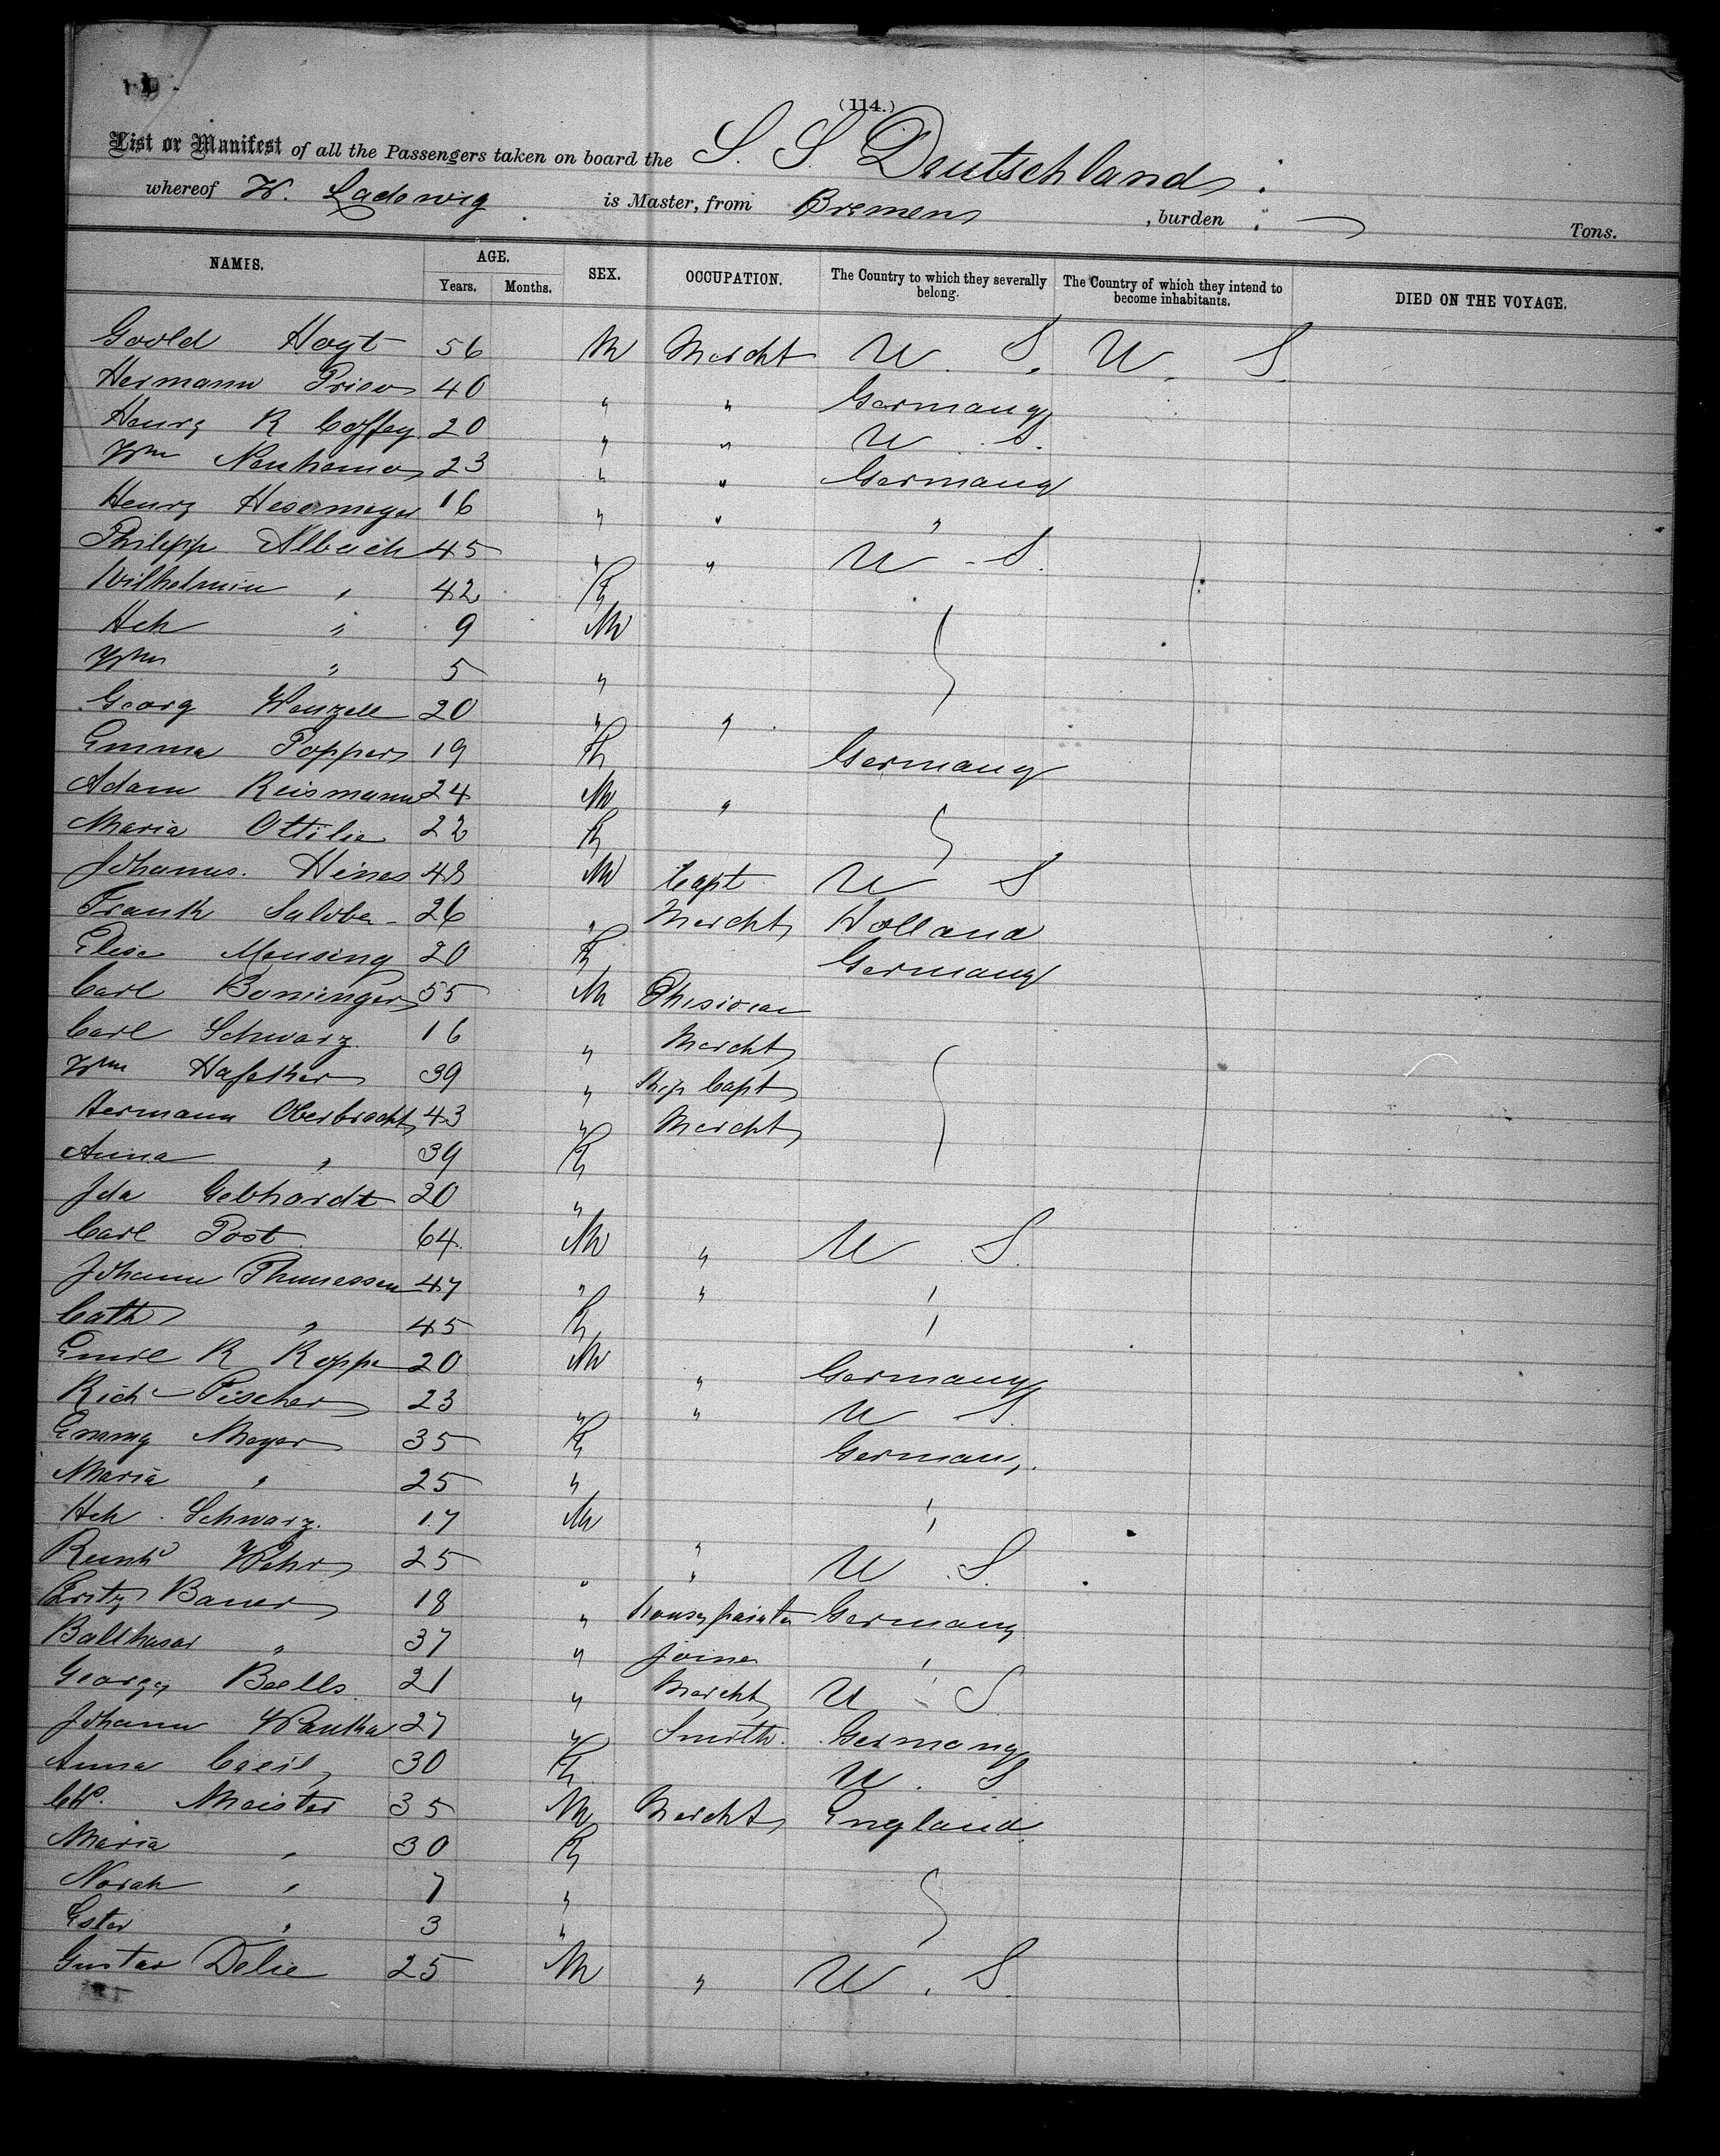 (114.)
List or Manifest of all the Passengers taken on board the S. S. Deutschland
whereof W. Ladewig is Master, from Bremen , burden Tons.
NAMES. AGE. SEX. OCCUPATION. The Country to which they severally belong. The Country of which they intend to become inhabitants. DIED ON THE VOYAGE.
Years. Months.
Goold Hoyt 56 M Mercht U. S. U. S.
Hermann 40 " " Germany
Henry R Coffey 20 " " U. S.
Wm 23 " " Germany
Henry 16 " " "
Philipp Albach 45 " " U. S.
Wilhelmin " 42 F
Hch " 9 M
Wm " 5 "
Georg Wenzell 20 " "
Emma Popper 19 F Germany
Adam Reismann 24 M "
Maria Ottilie 22 F
Hines 48 M Capt U S
Frank 26 " Mercht Holland
Elise Mensing 20 F Germany
Carl 55 M
Carl Schwarz. 16 " Mercht
Wm 39 " Ship Capt
Hermann Oberbracht 43 " Mercht
Anna " 39 F
Ida Gebhardt 20 "
Carl Post 64 M " U S.
Johann 47 " " "
Cath " 45 F "
Emil R Koppe 20 M " Germany
Rich Fischer 23 " " U S.
Emmy Meyer 35 F Germany
Maria " 25 " "
Hch. Schwarz. 17 M " "
25 " " U S.
Fritz Bauer 18 " Germany
Balthasar " 37 " Joiner "
George Beells 21 " Mercht U S
Johann Wanka 27 " Smith. Germany
Anna 30 F U. S
Meister 35 M Mercht England
Maria " 30 F
Norah " 7 "
Ester " 3 "
Gustav Delie 25 M " U. S.